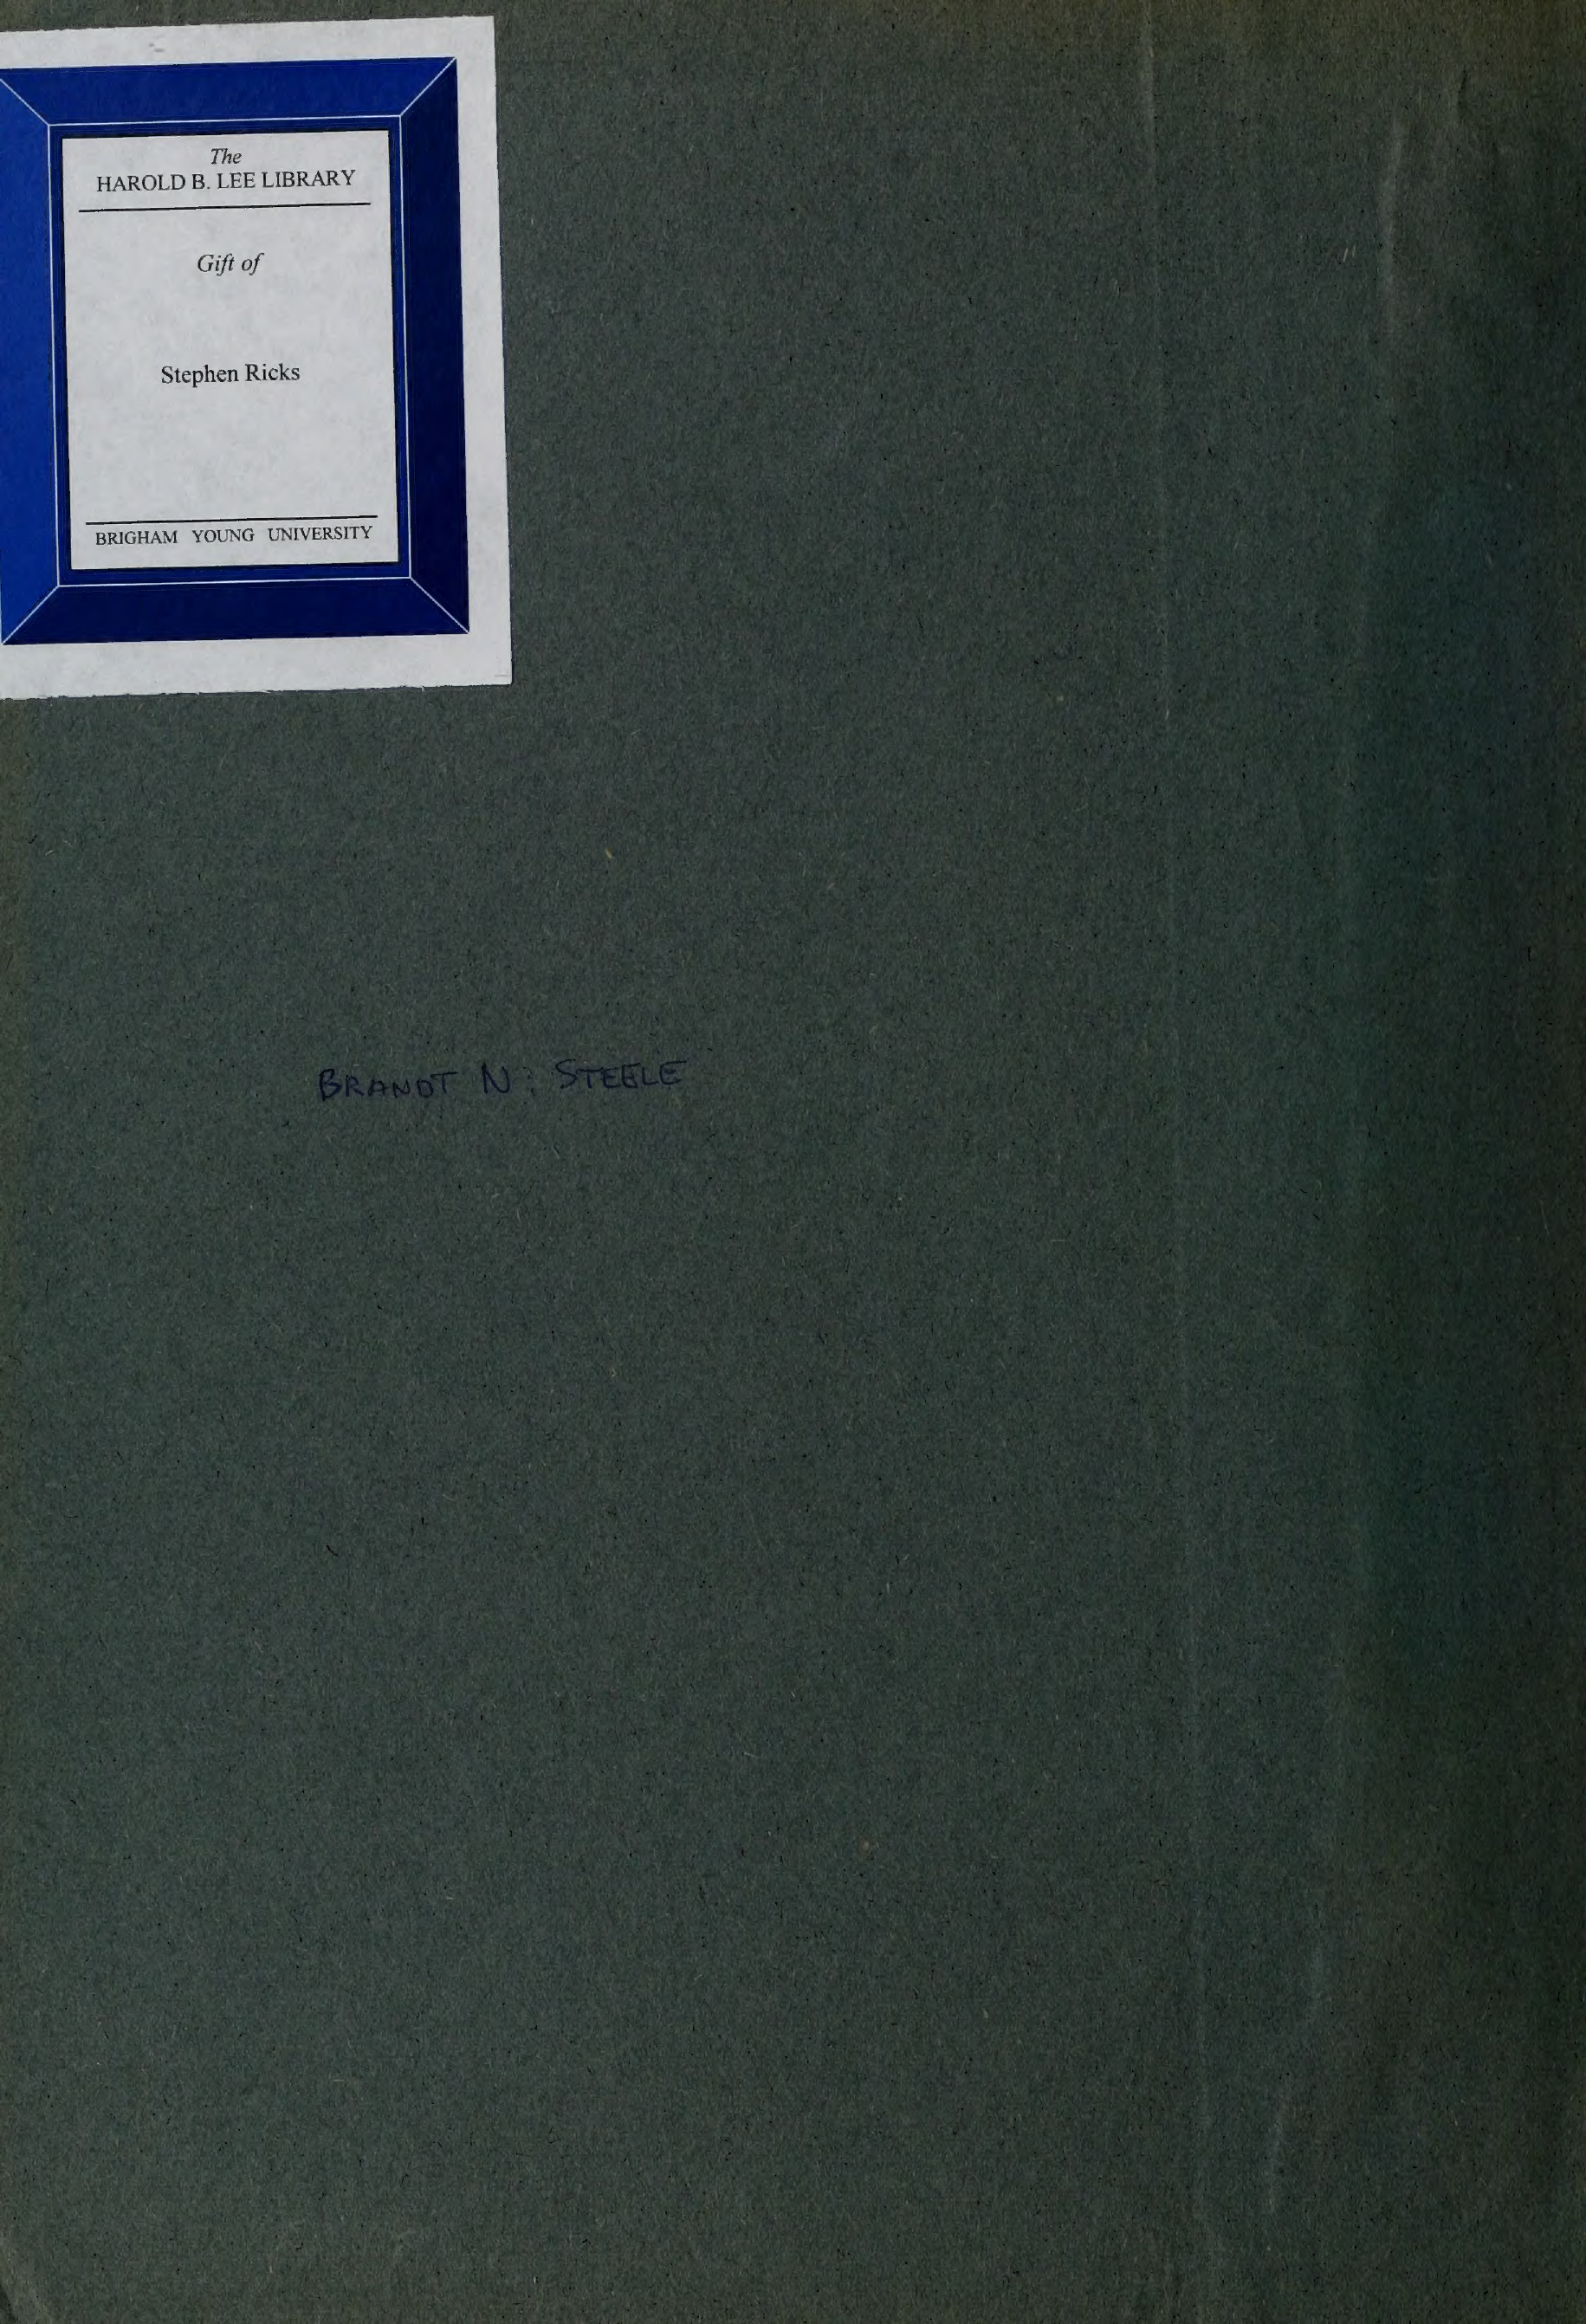 The
HAROLD B. LEE LIBRARY
Gift of
Stephen Ricks
BRIGHAM YOUNG UNIVERSITY
BRANDT N. STEELE